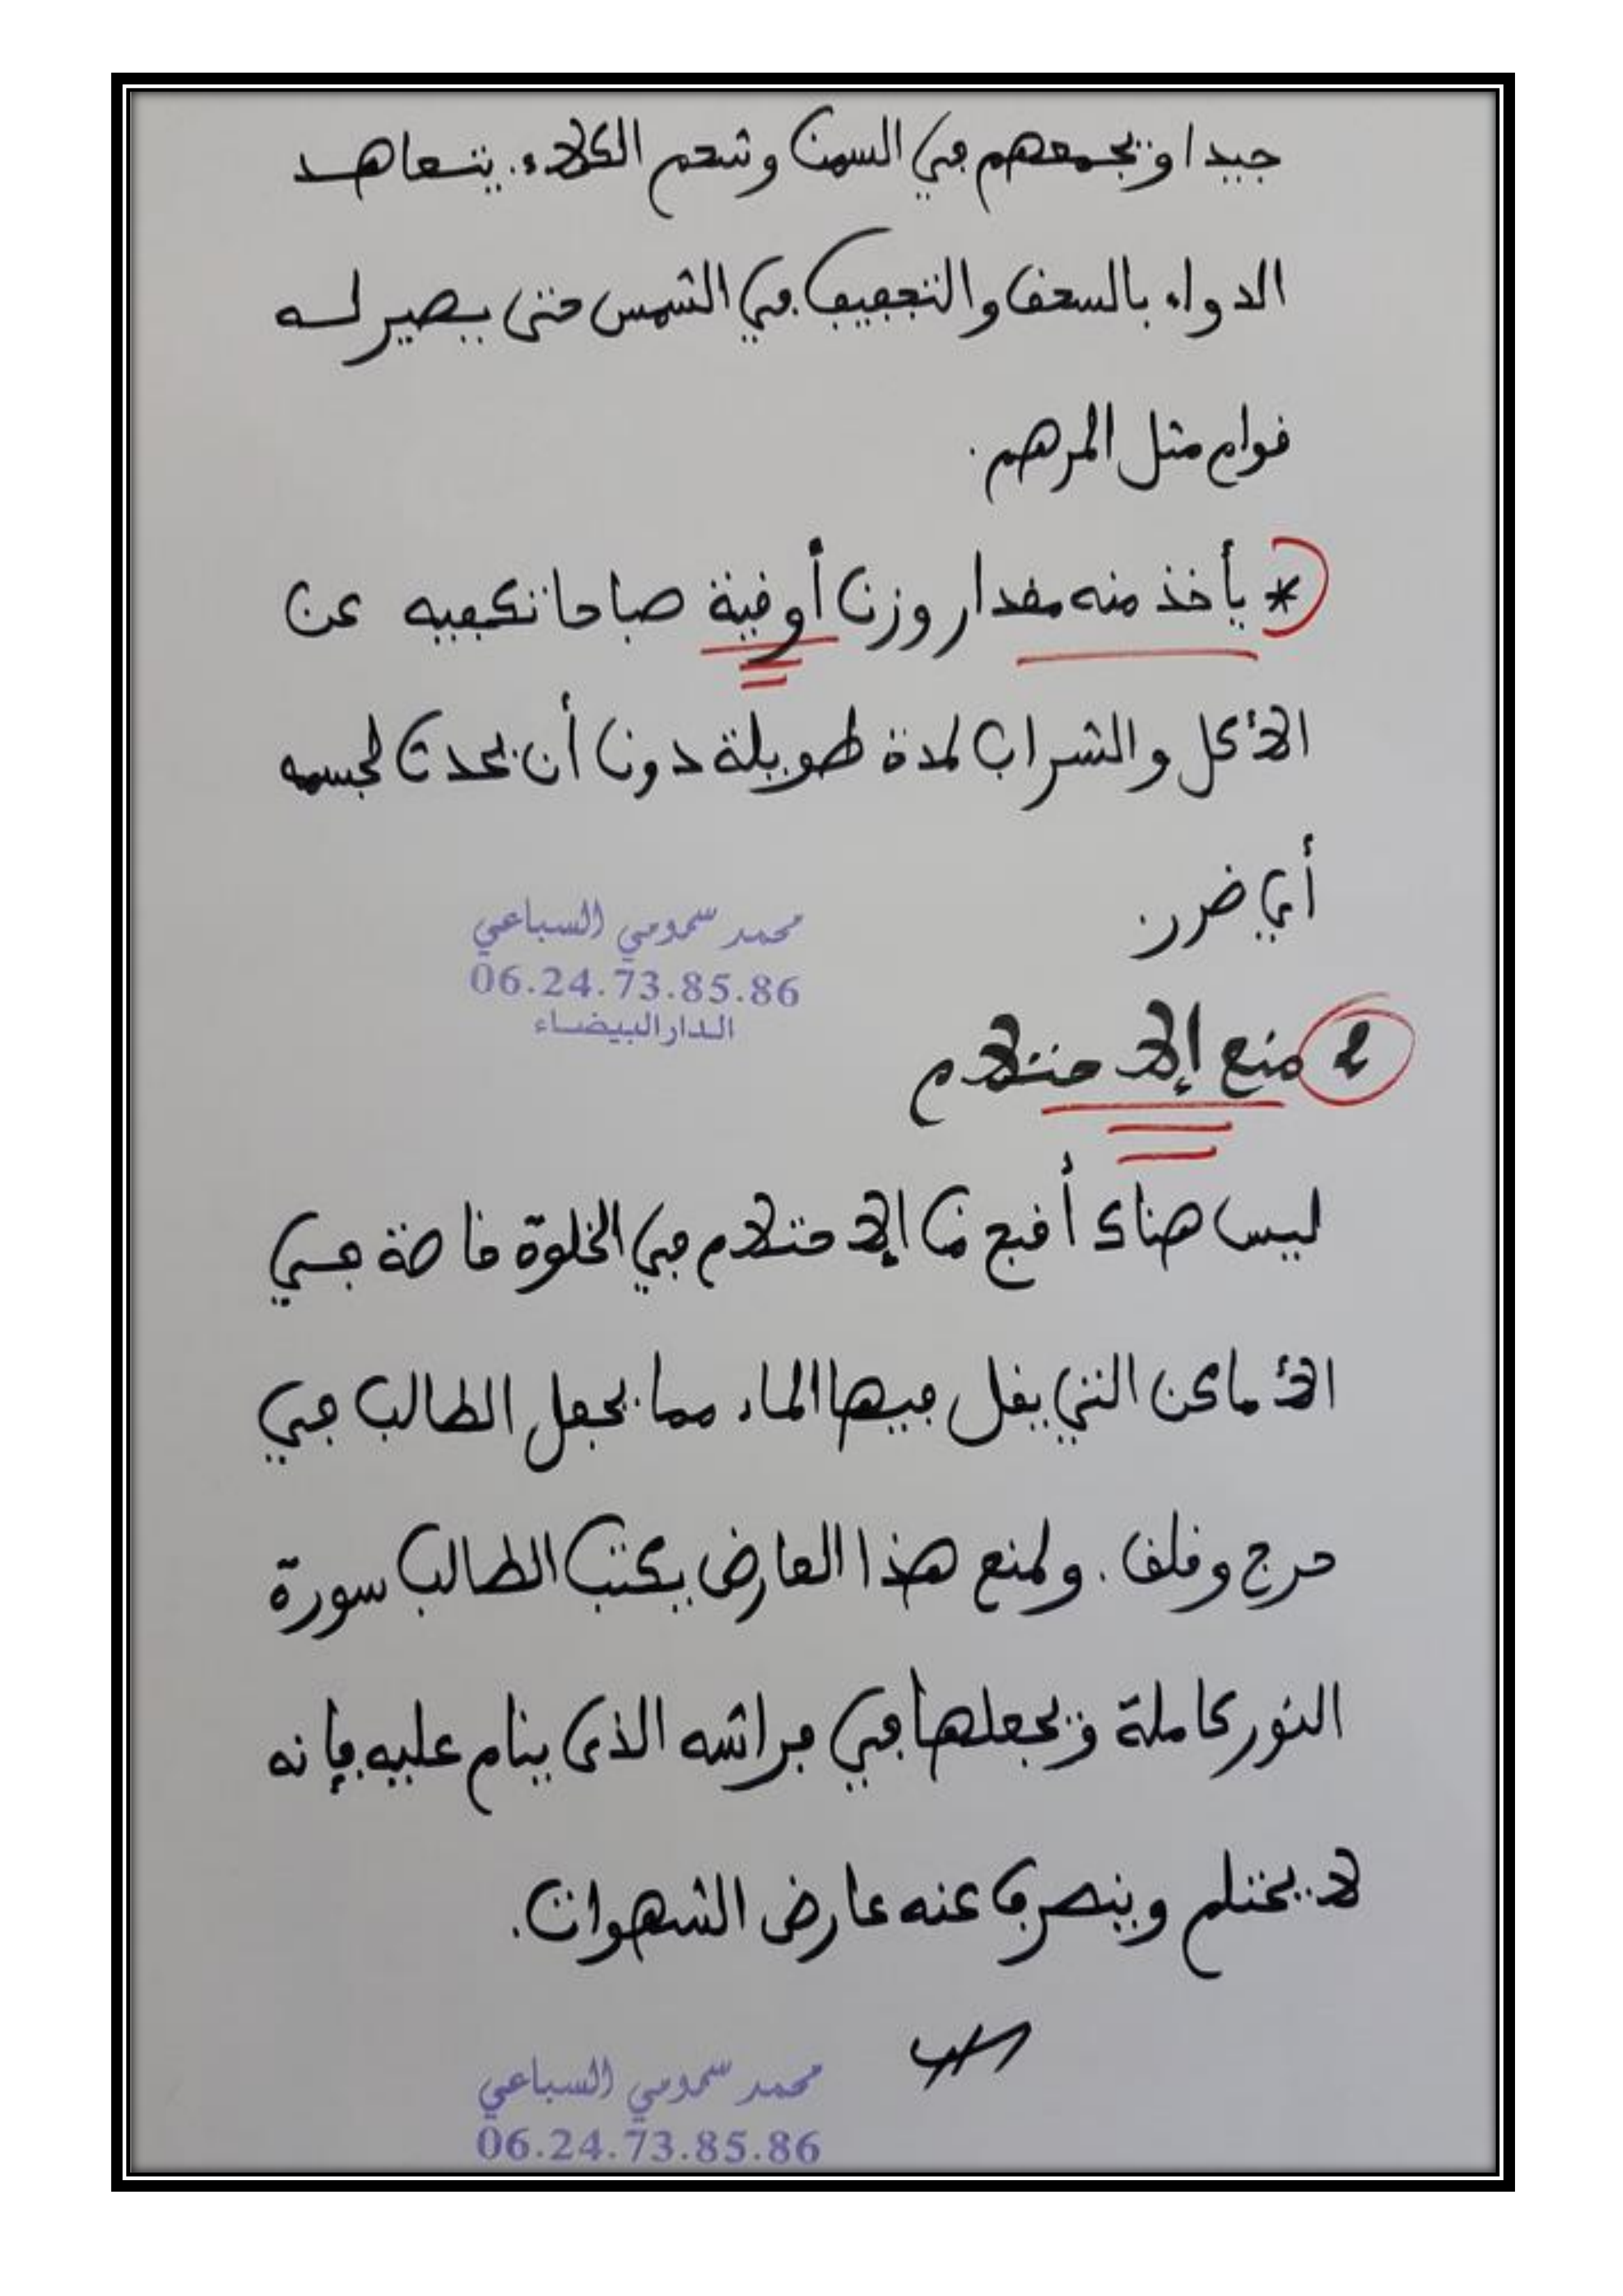 جيدا و يجمعهم في السمن وشحم الكلاء. يتعاهد
الدواء بالسحق والتجفيف في الشمس حتى يصير له
قوام مثل المرهم.
* يأخذ منه مقدار وزن أوقية صباحا تكفيه عن
الأكل والشراب لمدة طويلة دون أن يحدث لجسمه
أي ضرر.
محمد سمومي السباعي
06.24.73.85.86
الدار البيضاء
منع الإحتلام
ليس هناك أقبح من الإحتلام في الخلوة خاصة في
الأماكن التي يقل فيها الماء مما يجعل الطالب في
حرج وقلق. ولمنع هذا العارض يكتب الطالب سورة
النور كاملة و يجعلها في فراشه الذي ينام عليه فإنه
لا يحتلم وينصرف عنه عارض الشهوات.
محمد سمومي السباعي
06.24.73.85.86